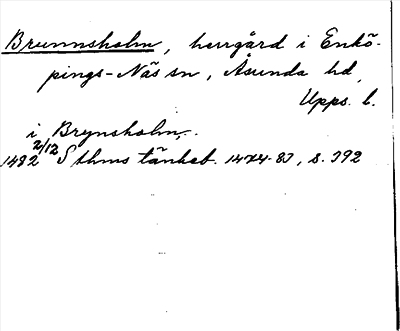 Brunnsholm, herrgård i Enkö-
pings-Näs sn, Åsunda hd,
Upps. l.
i Brynsholm,.
1482 2/12 Sthms tänkeb. 1474-83, s. 392